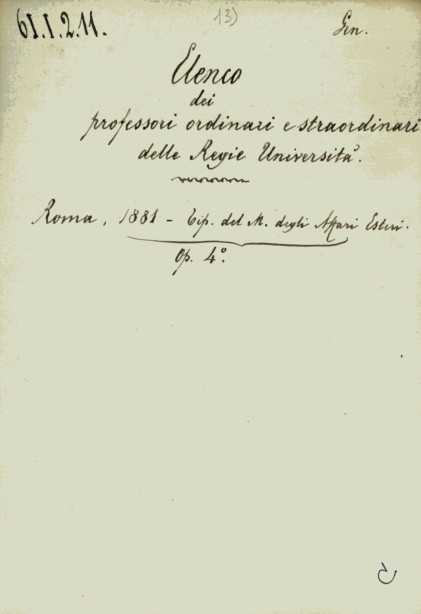 61.I.2.11.
13)
Gen.
Elenco
dei
professori ordinari e straordinari
delle Regie Università.
Roma, 1881 - Tip. del M. degli Affari Esteri.
Op. 4°.